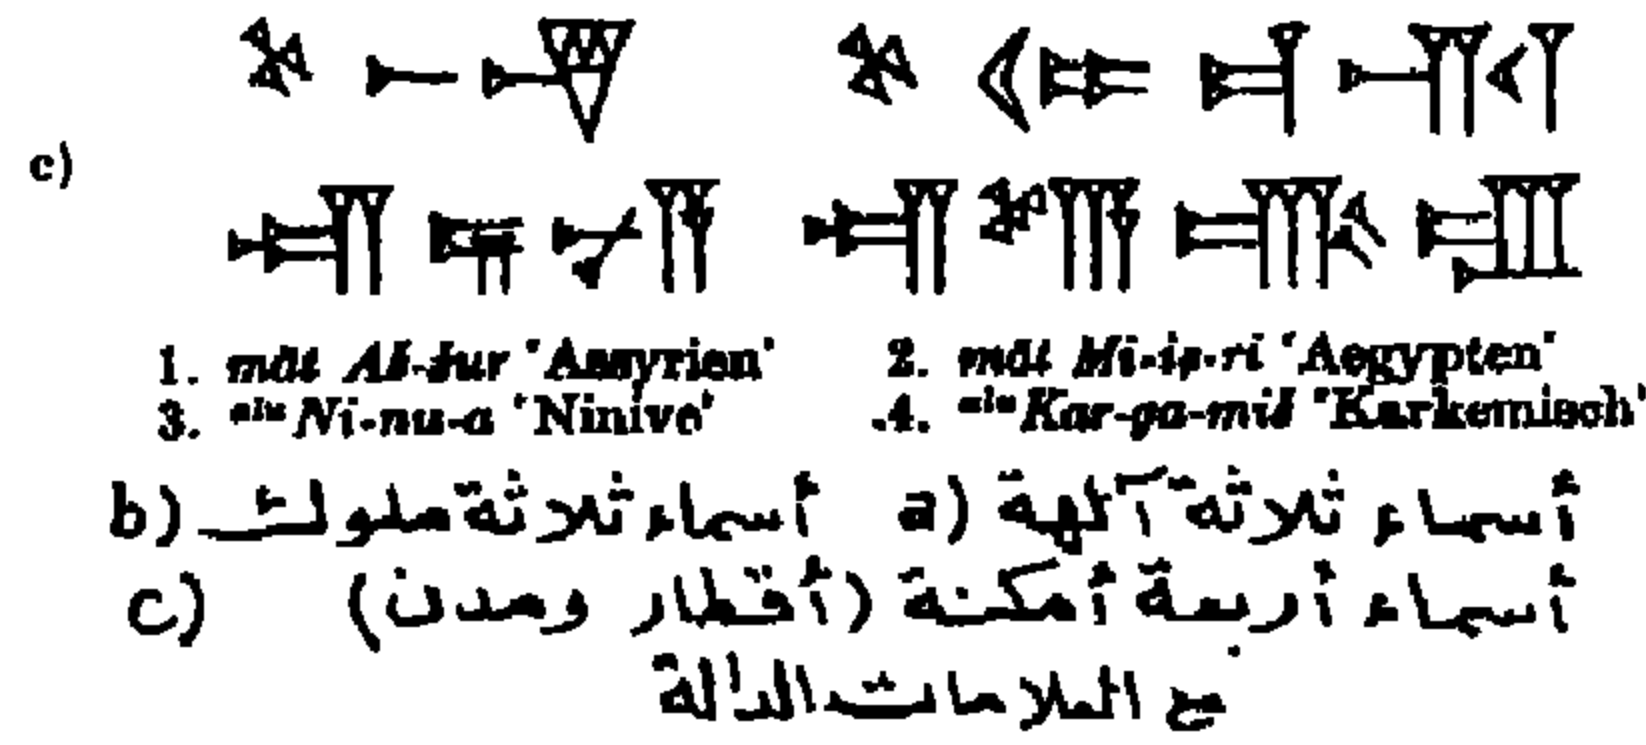 c)
1. māt Aš-šur 'Assyrien' 2. māt Mi-iṣ-ri 'Aegypten'
3. aluNi-nu-a 'Ninive' 4. aluKar-ga-miš 'Karkemisch'
a) أسماء ثلاثة آلهة b) أسماء ثلاثة ملوك
c) أسماء أربعة أمكنة (أقطار ومدن)
مع العلامات الدالة